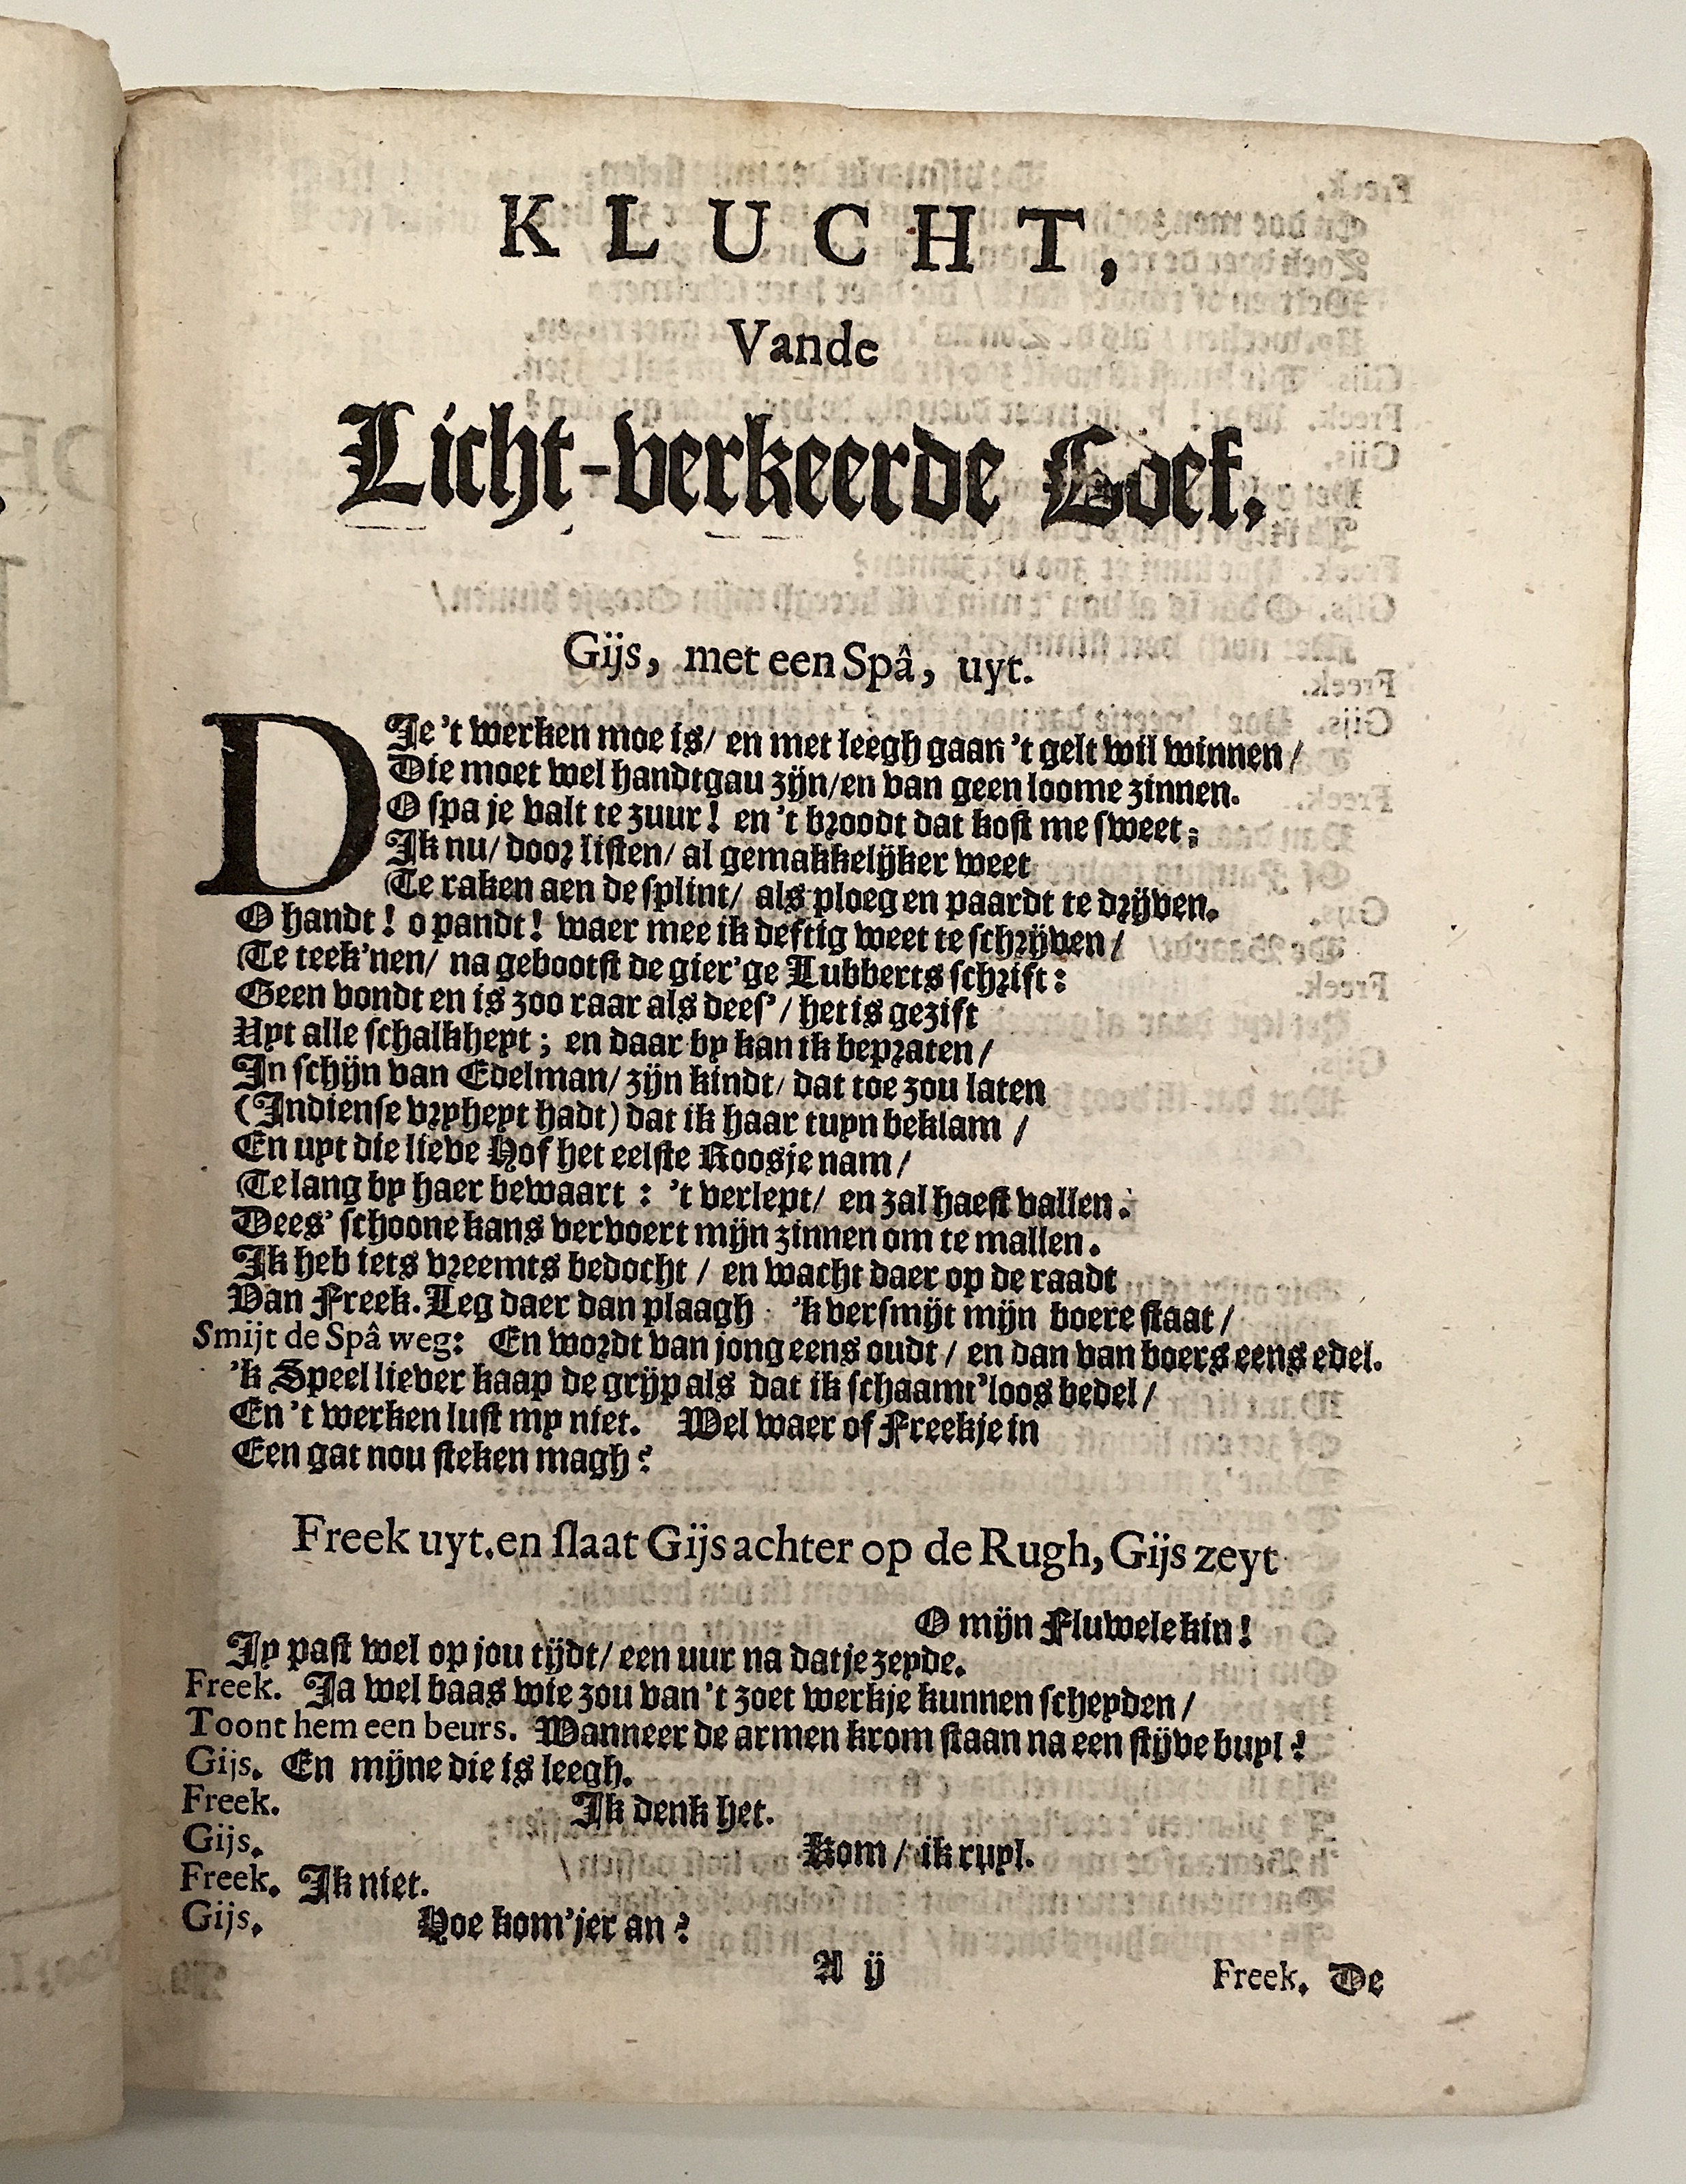 KLUCHT,
Vande
Licht-verkeerde Boef.
Gijs, met een Spâ, uyt.
DIe 't werken moe is/ en met leegh gaan 't gelt wil winnen/
Die moet wel handtgau zijn/en van geen loome zinnen.
O spa je valt te zuur! en 't broodt dat kost me sweet;
Ik nu/ door listen/ al gemakkelijker weet
Te raken aen de splint/ als ploeg en paardt te drijven.
O handt! o pandt! waer mee ik deftig weet te schrijven/
Te teek'nen/ na gebootst de gier'ge Lubberts schrift:
Geen vondt en is zoo raar als dees'/ het is gezift
Uyt alle schalkheyt; en daar by kan ik bepraten/
In schijn van Edelman/ zijn kindt/ dat toe zou laten
(Indiense vryheyt hadt) dat ik haar tuyn beklam/
En uyt die lieve Hof het eelste Roosje nam/
Te lang by haer bewaart: 't verlept/ en zal haest vallen.
Dees' schoone kans vervoert mijn zinnen om te mallen.
Ik heb iets vreemts bedocht/ en wacht daer op de raadt
Van Freek. Leg daer dan plaagh 'k versmijt mijn boere staat/
Smijt de Spâ weg: En wordt van jong eens oudt/ en dan van boers eens edel.
'k Speel liever kaap de grijp als dat ik schaamt'loos bedel/
En 't werken lust my niet. Wel waer of Freekje in
Een gat nou steken magh?
Freek uyt.en slaat Gijs achter op de Rugh, Gijs zeyt
O mijn Fluwele kin!
Jy past wel op jou tijdt/ een uur na datje zeyde.
Freek. Ja wel baas wie zou van 't zoet werkje kunnen scheyden/
Toont hem een beurs. Wanneer de armen krom staan na een stijve buyl?
Gijs. En mijne die is leegh.
Freek. Ik denk het.
Gijs. Kom/ ik ruyl.
Freek. Ik niet.
Gijs. Hoe kom'jer an?
A ij Freek. De